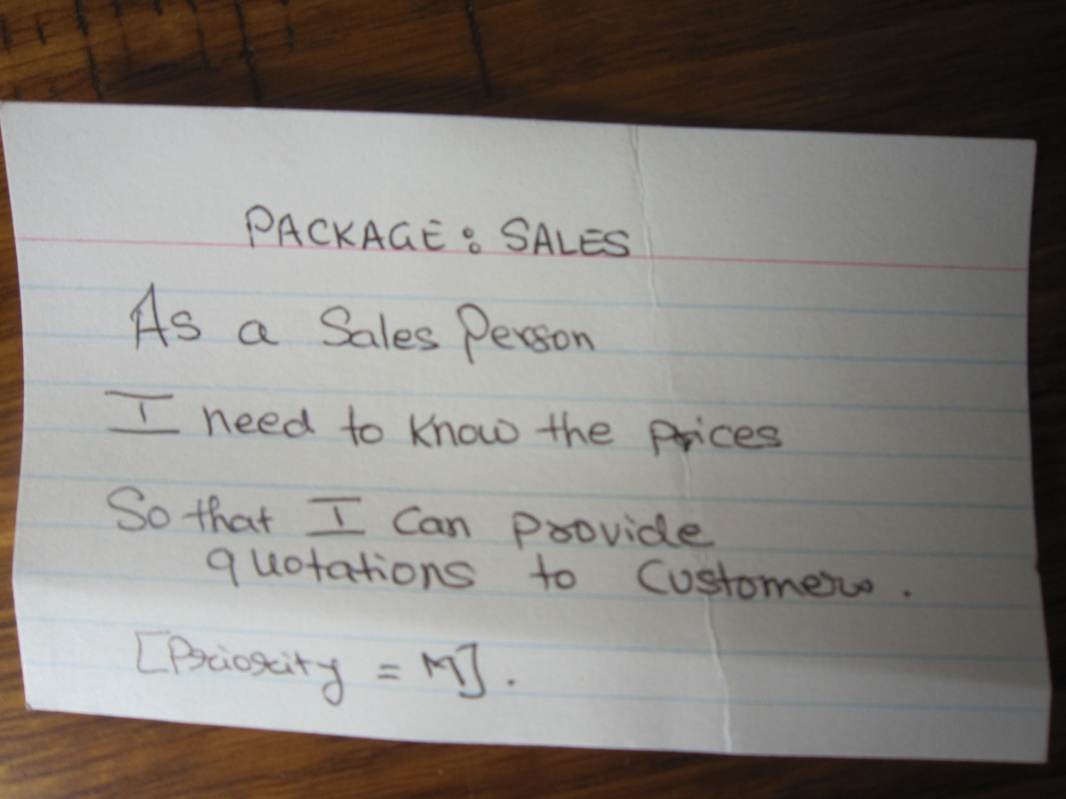 PACKAGE: SALES
As a Sales Person
I need to know the prices
So that I can provide
quotations to Customers.
[Priority = M].